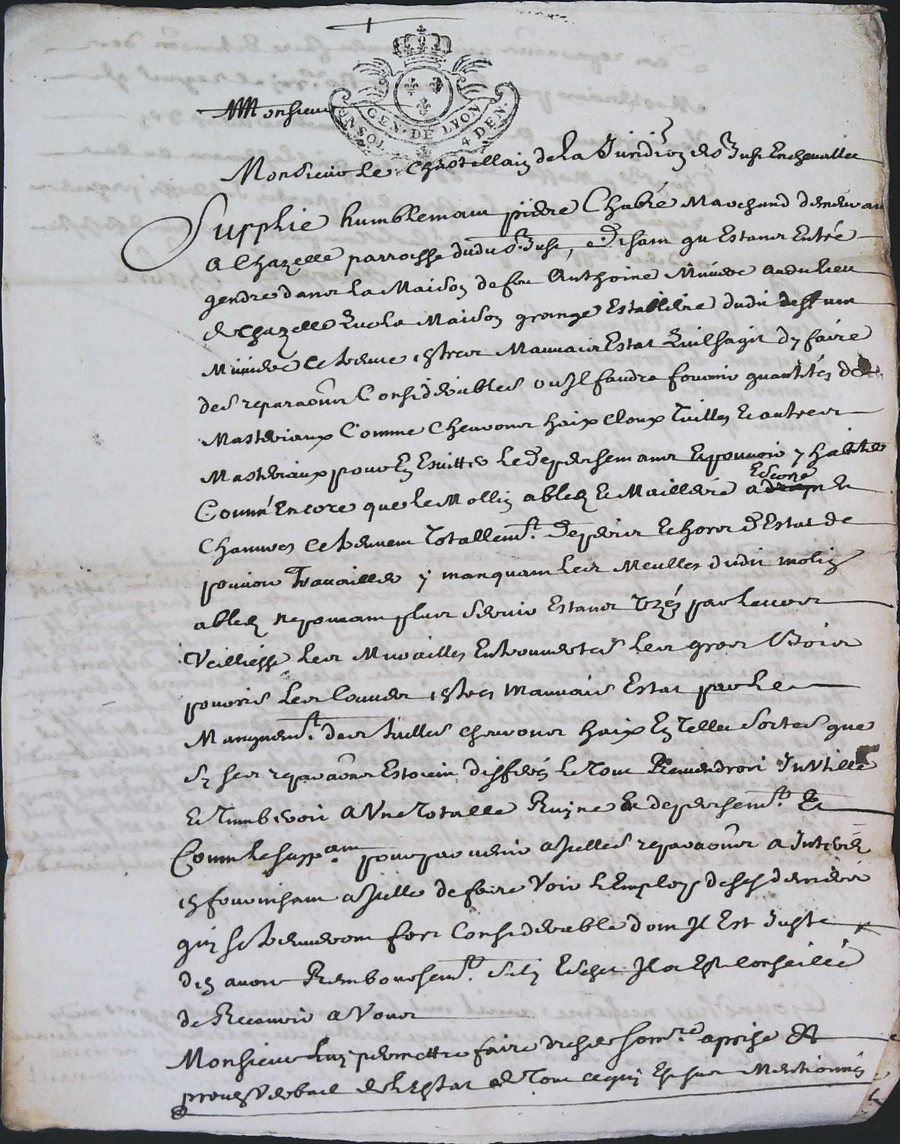 GEN. DE LYON
UN SOL 4 DEN.
Monsieur
Monsieur le Chastellain de la Juridion de St Just Enchevallee
Supplie humblemant pierre Chabré Marchand demeurant
a Chazelle parroisse dudit St Just, disant qu Estant Entré
gendre dans la Maison de feu Anthoine au du lieu
de Chazelle que la Maison grange Establerie dudit deffunt
se treuve en tres Mauvais Estat quil sagit dy faire
des reparaons Considerables ou Il faudra fournir quantités de
Masteriaux Comme Chevrons haix cloux Tuilles Et autres
Masteriaux pour En Esvitter le deperissemant Et pouvoir y habiter
Comme Encore que le Mollin a bled Et Maillerie a Escorce Et
Chanvres se treuvent Totallemt. deperir Et hors d Estat de
pouvoir Travailler y manquant les Meulles dudit molin
a bled ne pouvant plus servir Estant par leur
Vielliesse les Murailles Entrouvertes les gros Bois
pourris les Couvers en tres Mauvais Estat par le
Manquemt. des tuilles chevrons haix En Telles Sortes que
sy les reparaons Estoient differés le Tout Reviendroit Inutille
Et Tumberoit a Une Totalle Ruyne Et deperissemt. Et
Comme le suppant pour parvenir a Icelles reparaons a Interest
En fournissant a Icelle de faire Voir l Employ de ses deniers
quy se treuveront fort Considerable dont Il Est Juste
den avoir Remboursemt. Sil y Eschet Il a Esté Conseillé
de Recourir a Vous
Monsieur luy permettre faire dresser som.re aprise Et
proces Verbail de l Estat de Tout ce quy Est sus Mentionné